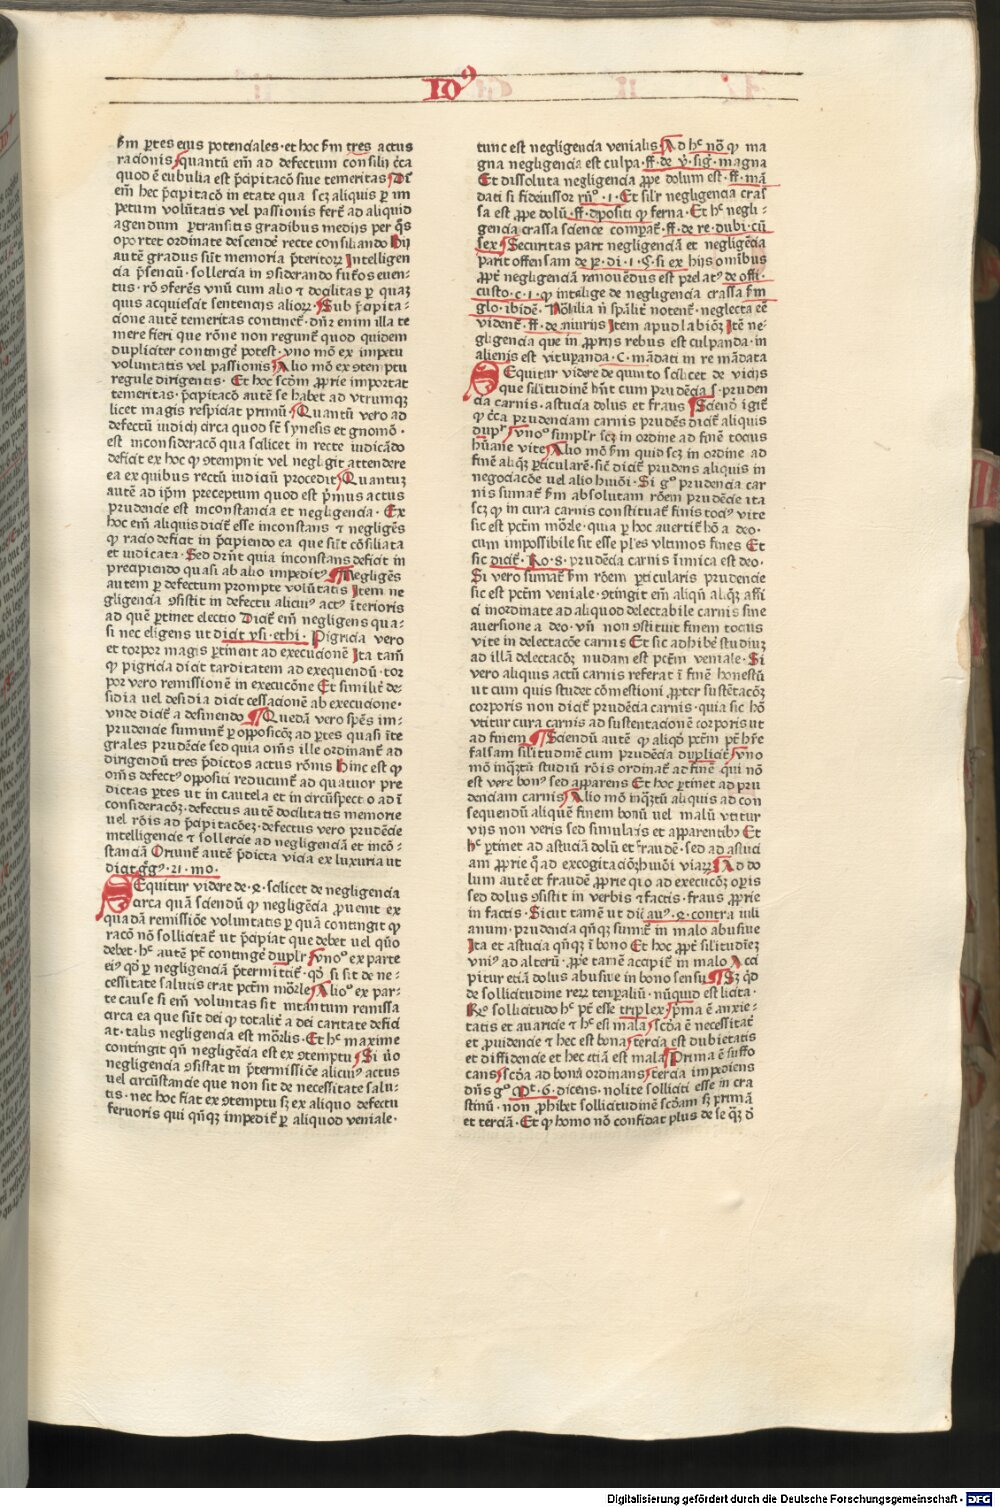 10⁹
ẜm ꝑtes eius potenciales·et hoc ẜm tres actus
racionis quantū em̄ ad defectum consilij c̄ca
quod ē eubulia est p̄cipitacō siue temeritas Dr̄
em̄ hec p̄cipitacō in etate qua scꝫ aliquis ꝑ im
petum volūtatis vel passionis fert̄ ad aliquid
agendum ꝑtransitis gradibus medijs per q̄s
oportet ordinate descende recte consiliando Hij
autē gradus sūt memoria p̄teritoꝝ Intelligen
cia p̄senciū·sollercia in ꝯsiderando futꝰos euen⸗
tus·rō ꝯferēs vnū cum alio ⁊ docilitas ꝑ quaꝫ
quis acquiescit sentencijs alioꝝ Sub p̄cipita⸗
cione autē temeritas continet̄·dn̄r enim illa te
mere fieri que rōne non regunt̄ quod quidem
dupliciter contingē potest·vno mō ex impetu
voluntatis vel passionis Alio mō ex ꝯtemptu
regule dirigentis·Et hoc scdm̄ ꝓprie importat
temeritas·p̄cipitacō autē se habet ad vtrumqꝫ
licet magis respiciat primū·Quantū vero ad
defectū iudicij circa quod sūt synesis et gnomō·
est inconsideracō qua scilicet in recte iudicādo
deficit ex hoc ꝙ ꝯtempnit vel negligit attendere
ea ex quibus rectū iudiciū procedit Quantuꝫ
autē ad ip̄m preceptum quod est p̄mus actus
prudencie est inconstancia et negligencia·Ex
hoc em̄ aliquis dicit̄ esse inconstans ⁊ negligēs
ꝙ racio deficit in p̄cipiendo ea que sūt cōsiliata
et iudicata·Sed dr̄nt quia inconstans deficit in
precipiendo quasi ab alio impeditꝰ Negligēs
autem ꝑ defectum prompte volūtatis Item ne
gligencia ꝯsistit in defectu alicuiꝰ actꝰ īterioris
ad quē ꝑtinet electio Dicit̄ em̄ negligens qua⸗
si nec eligens ut dicit ysi·ethi·Pigricia vero
et torpor magis ꝑtinent ad execucionē Ita tam̄
ꝙ pigricia dicit tarditatem ad exequendū·tor
por vero remissionē in execucōne Et similit̄ de⸗
sidia uel desidia dicit cessacionē ab execucione·
vnde dicit̄ a desinendo Quedā vero spēs im⸗
prudencie sumunt̄ ꝑ opposicōꝫ ad ꝑtes quasi īte
grales prudēcie sed quia om̄s ille ordinant̄ ad
dirigendū tres p̄dictos actus rōnis hinc est ꝙ
om̄s defectꝰ oppositi reducunt̄ ad quatuor pre
dictas ꝑtes ut in cautela et in circūspectio ad ī
consideracōꝫ·defectus autē docilitatis memorie
uel rōis ad p̄cipitacōeꝫ·defectus vero prudēcie
intelligencie ⁊ sollercie ad negligenciā et incō⸗
stanciā Oriunt̄ autē p̄dicta vicia ex luxuria ut
dicit gͥgꝰ·21·mo·
Sequitur videre de·2·scilicet de negligencia
circa quā sciendū ꝙ negligēcia ꝓuenit ex
quadā remissiōe voluntatis ꝑ quā contingit ꝙ
racō nō sollicitat̄ ut p̄cipiat que debet uel quō
debet·hͨ autē pt̄ contingē duplr̄ vnoᵒ ex parte
eiꝰ qd̓ ꝑ negligenciā p̄termittit̄·qd̓ si sit de ne⸗
cessitate salutis erat pctm̄ mōrle Alioᵒ ex par⸗
te cause si em̄ voluntas sit intantum remissa
circa ea que sūt dei ꝙ totalit̄ a dei caritate defici
at·talis negligencia est mōrlis·Et hͨ maxime
contingit qn̄ negligēcia est ex ꝯtemptu Si ūo
negligencia ꝯsistat in p̄termissiōe alicuiꝰ actus
uel circūstancie que non sit de necessitate salu⸗
tis·nec hoc fiat ex ꝯtemptu sꝫ ex aliquo defectu
feruoris qui qn̄qꝫ impedit̄ ꝑ aliquod veniale·
tunc est negligencia venialis Ad hͨ nō ꝙ ma
gna negligencia est culpa·ff·de v̄·siḡ·magna
Et dissoluta negligencia ꝓpe dolum est·ff·mā
dati si fideiussor rn̄ᵒ·1·Et silr̄ negligencia cras
sa est ꝓpe dolū·ff·dpositi ꝙ ferna·Et hͨ negli⸗
gencia crassa science comparat̄·ff·de re·dubi·cū
sex Securitas parit negligenciā et negligēcia
parit offensam de pe·di·1·C·si ex hijs omībus
ꝓpt̄ negligenciā remouēdus est prelatꝰ de offi·
custo·c·1·ꝙ intellige de negligencia crassa ẜm
glo·ibidē· Nobilia n̄ sp̄alit̄ notent̄·neglecta eē
vident̄·ff·de iniurijs Item apud labioꝫ Itē ne⸗
gligencia que in ꝓprijs rebus est culpanda·in
alienis est vitupanda·C·mādati in re mādata
Sequitur videre de quinto scilicet de vicijs
que silitudinē hn̄t cum prudēcia s·pruden
cia carnis·astucia dolus et fraus Sciendū igit̄
ꝙ c̄ca prudenciam carnis prudēs dicit̄ aliquis
duplr̄ vnoᵒ simplr̄ scꝫ in ordine ad finē tocius
hūane vite Alio mō ẜm quid scꝫ in ordine ad
finē aliqꝫ ꝑticularē·sic̄ dicit̄ prudens aliquis in
negociacōe uel alio huiōi·Si gᵒ prudencia car
nis sumat̄ ẜm absolutam rōem prudēcie ita
scꝫ ꝙ in cura carnis constituat̄ finis tociꝰ vite
sic est pctm̄ mōrle·quia ꝑ hoc auertit̄ hō a deo·
cum impossibile sit esse pl̄es vltimos fines Et
sic dicit̄·Ro·8·prudēcia carnis īimica est deo·
Si vero sumat̄ ẜm rōem ꝑticularis prudencie
sic est pctm̄ veniale·ꝯtingit em̄ aliqn̄ aliqꝫ affi
ci inordinate ad aliquod delectabile carnis sine
auersione a deo·vn̄ non ꝯstituit finem tocius
vite in delectacōe carnis Et sic adhibē studiuꝫ
ad illā delectacōꝫ nudam est pctm̄ veniale·Si
vero aliquis actū carnis referat ī finē honestū
ut cum quis studet cōmestioni ꝓpter sustētacōꝫ
corporis non dicit̄ prudēcia carnis·quia sic hō
vtitur cura carnis ad sustentacionē corporis ut
ad finem Sciendū autē ꝙ aliqd̓ pctm̄ pt̄ hr̄e
falsam silitudinē cum prudēcia duplicit̄ vno
mō inqꝫtū studiū rōis ordinat̄ ad finē·qui nō
est vere bonꝰ sed apparens Et hoc ꝑtinet ad pru
denciam carnis Alio mō inqꝫtū aliquis ad con
sequendū aliquē finem bonū uel malū vtitur
vijs non veris sed simulatis et apparentibꝰ Et
hͨ ꝑtinet ad astuciā dolū et fraudē·sed ad astuci
am ꝓprie q̄ ad excogitaciōꝫ huiōi viaꝝ Ad do
lum autē et fraudē ꝓprie quo ad execucōꝫ oꝑis
sed dolus ꝯsistit in verbis ⁊ factis·fraus ꝓprie
in factis·Sicut tamē ut dicit auꝰ·2·contra iuli
anum·prudencia qn̄qꝫ sumit̄ in malo abusiue
Ita et astucia qn̄qꝫ ī bono Et hoc ꝓpt̄ silitudīeꝫ
vniꝰ ad alterū·ꝓpe tamē accipit̄ in malo Acci
pitur etiā dolus abusiue in bono sensu Sꝫ qd̓
de sollicitudine reꝝ temꝑaliū·nūquid est licita·
Rᵒ sollicitudo hͨ pt̄ esse triplex pͥma ē anxie⸗
tatis et auaricie ⁊ hͨ est mala scd̄a ē necessitat̄
et ꝓuidencie ⁊ hec est bona tercia est dubietatis
et diffidencie et hec etiā est mala Prima ē suffo
cans scd̄a ad bonū ordinans tercia impediens
dn̄s gᵒ Mt̄·6·dicens·nolite solliciti esse in cra
stinū·non ꝓhibet sollicitudinē scd̄am sꝫ primā
et terciā·Et ꝙ homo nō confidat plus de se qꝫ d̓
Digitalisierung gefördert durch die Deutsche Forschungsgemeinschaft - DFG